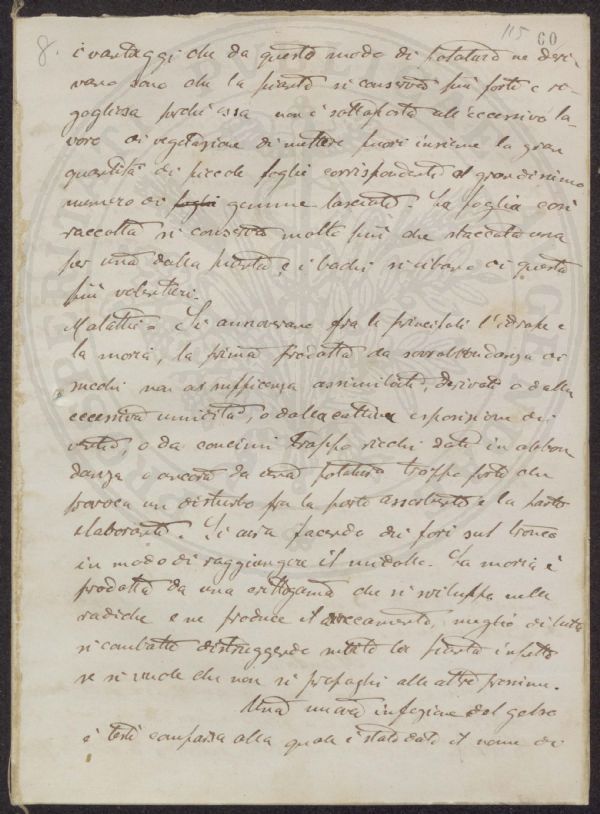 8.
115 60
i vantaggi che da questo modo di potatura ne deri-
vano sono che la pianta si conserva più forte e ri-
gogliosa perchè essa non è sottoposta all'eccessivo la-
voro di vegetazione di mettere fuori insieme la gran
quantità di piccole foglie corrispondente al grandissimo
numero di fogli gemme lasciate. La foglia così
raccolta si conserva molto più che staccata una
per una dalla pianta, e i bachi si cibano di questa
più volentieri.
Malattie = Si annoverano fra le principali l'idrope e
la moria, la prima prodotta da sovrabbondanza di
succhi non a sufficenza assimilati, derivati o dalla
eccessiva umidità, o dalla cattiva esposizione dei
, o da concimi troppo ricchi dati in abbon
danza o ancora da una potatura troppo forte che
provoca un disturbo fra la parte assorbente e la parte
elaborante. Si cura facendo dei fori sul tronco
in modo di raggiungere il midollo. La moria è
prodotta da una crittogama che si sviluppa nelle
radiche e ne produce il seccamento, meglio di tutto
si combatte distruggendo subito la pianta infetta
se si vuole che non si propaghi alle altre prossime.
Una nuova infezione del gelso
è testè comparsa alla quale è stato dato il nome di